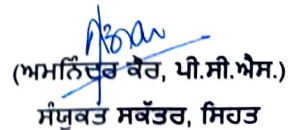 (ਅਮਨਿੰਦਰ ਕੌਰ, ਪੀ.ਸੀ.ਐਸ.)
ਸੰਯੁਕਤ ਸਕੱਤਰ, ਸਿਹਤ